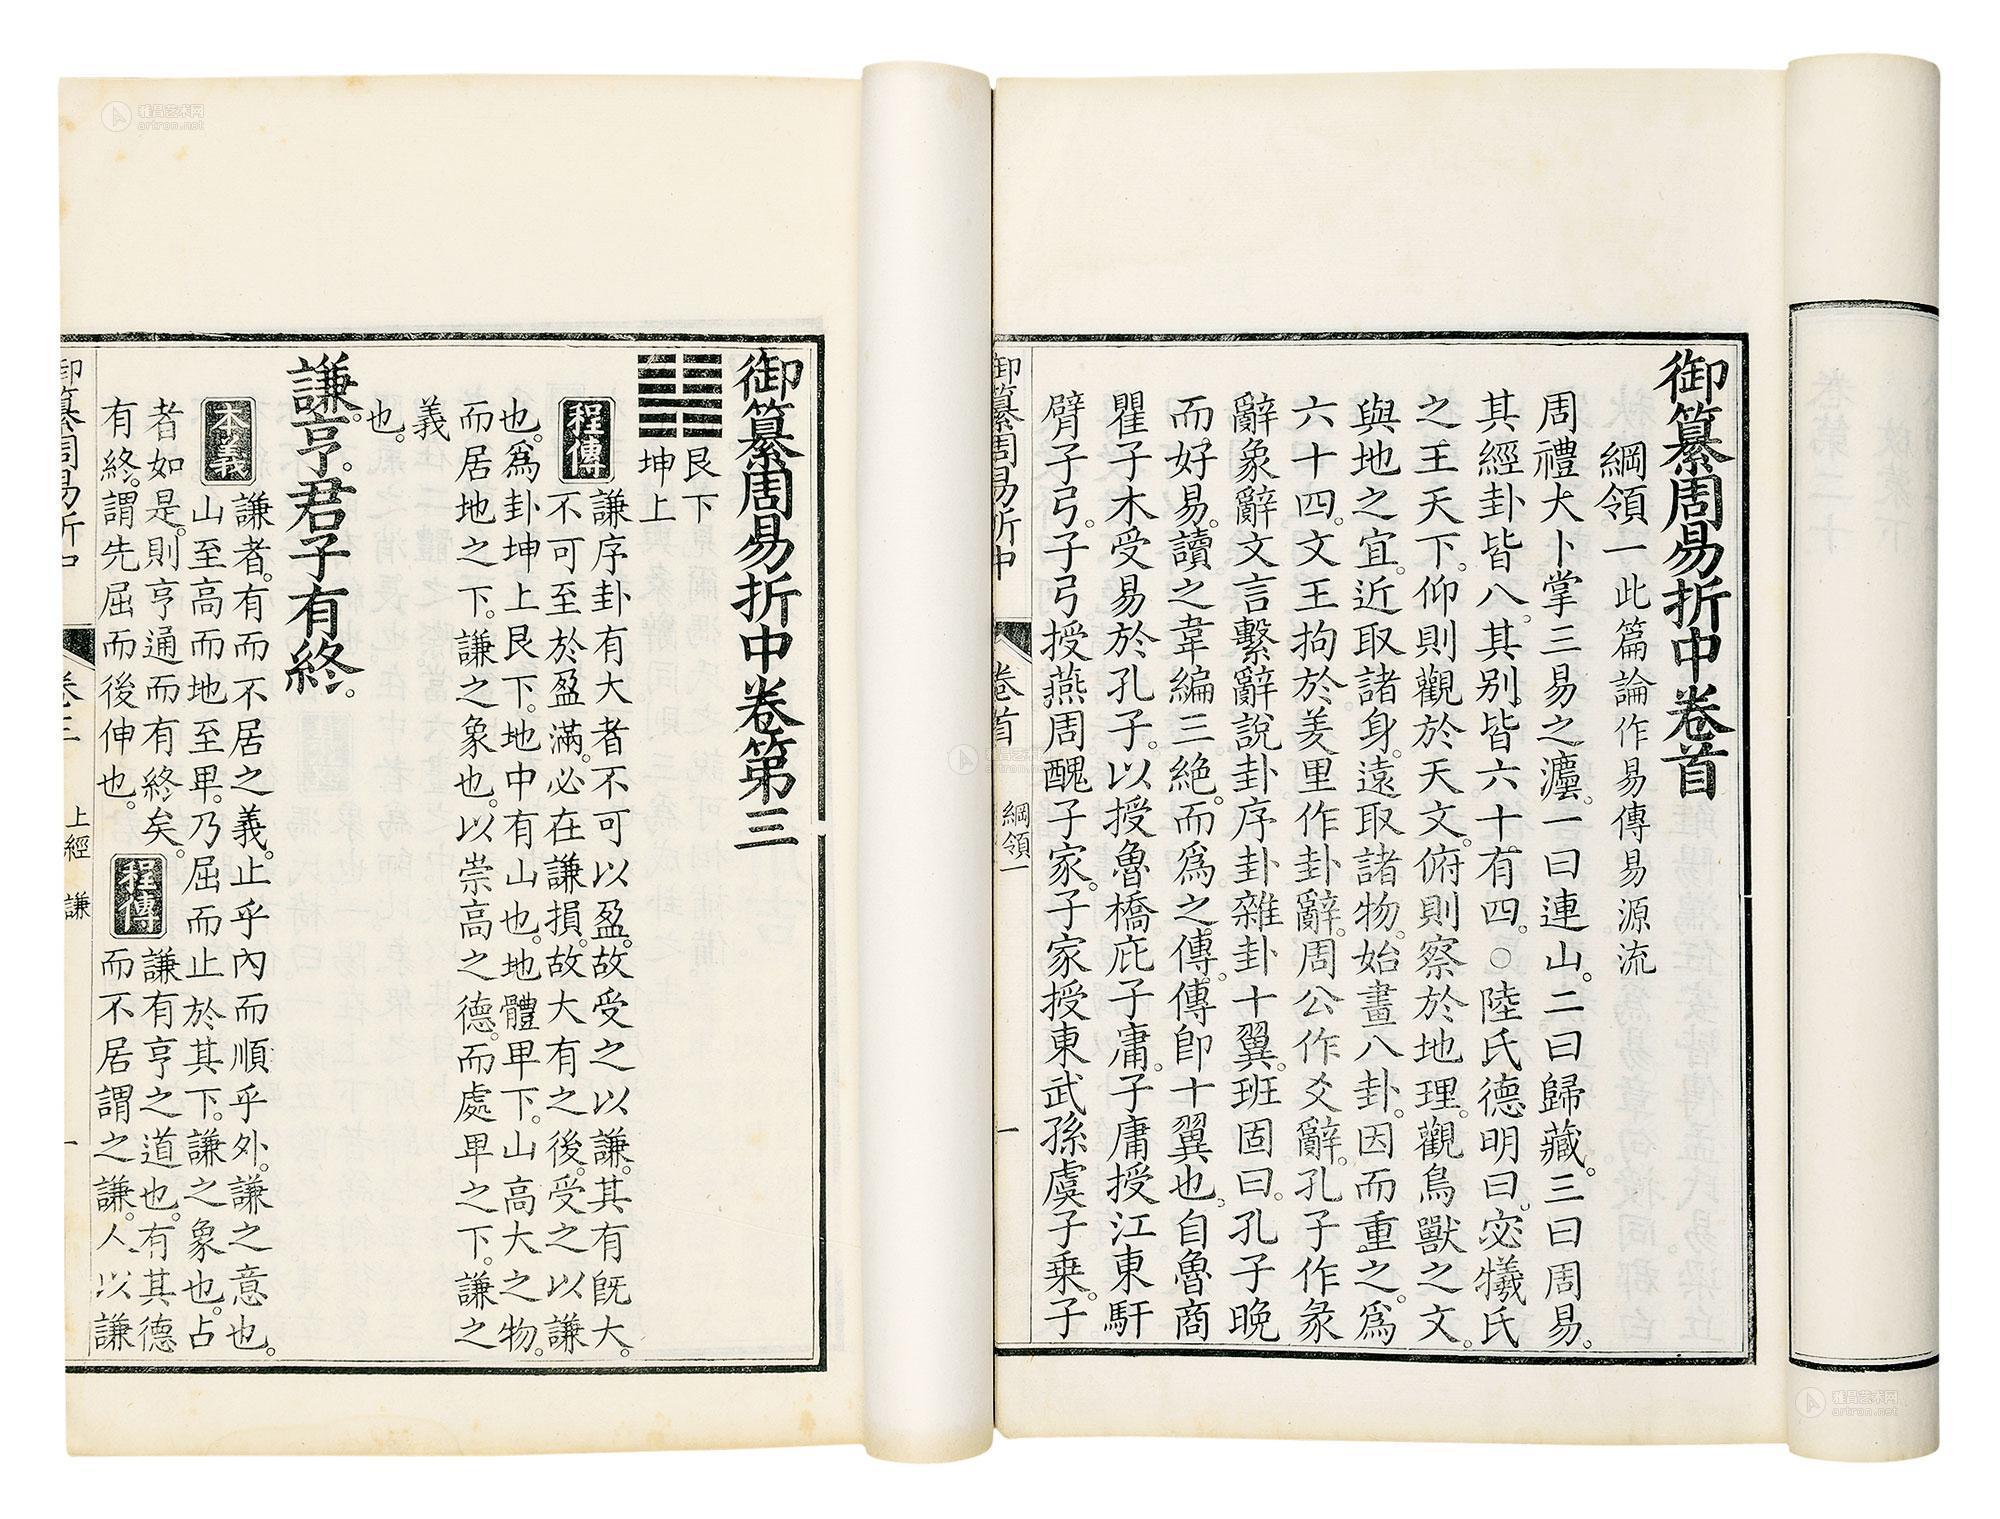 御纂周易折中卷首
綱領一此篇論作易傳易源流
周禮大卜掌三易之灋。一曰連山。二曰歸藏。三曰周易。
其經卦皆八。其別皆六十有四。○陸氏德明曰。宓犧氏
之王天下。仰則觀於天文。俯則察於地理。觀鳥獸之文。
與地之宜。近取諸身。遠取諸物。始畫八卦。因而重之。爲
六十四。文王拘於羑里作卦辭。周公作爻辭。孔子作彖
辭象辭文言繫辭說卦序卦雜卦十翼。班固曰。孔子晚
而好易。讀之韋編三絕。而爲之傳。傳卽十翼也。自魯商
瞿子木受易於孔子。以授魯橋庇子庸。子庸授江東馯
臂子弓。子弓授燕周醜子家。子家授東武孫虞子乗。子
御纂周易折中
卷首
綱領一
一
御纂周易折中卷第三
艮下
坤上
程傳
謙序卦有大者不可以盈。故受之以謙。其有旣大。
不可至於盈滿。必在謙損。故大有之後。受之以謙
也。爲卦坤上艮下。地中有山也。地體卑下。山高大之物。
而居地之下。謙之象也。以崇高之德。而處卑之下。謙之
義
也。
謙亨。君子有終。
本義
謙者。有而不居之義。止乎內而順乎外。謙之意也。
山至高而地至卑。乃屈而止於其下。謙之象也。占
者如是。則亨通而有終矣。
程傳
謙有亨之道也。有其德
有終。謂先屈而後伸也。
而不居謂之謙。人以謙
御纂周易折中
卷三
上經 謙
一
雅昌艺术网
artron.net
雅昌艺术网
artron.net